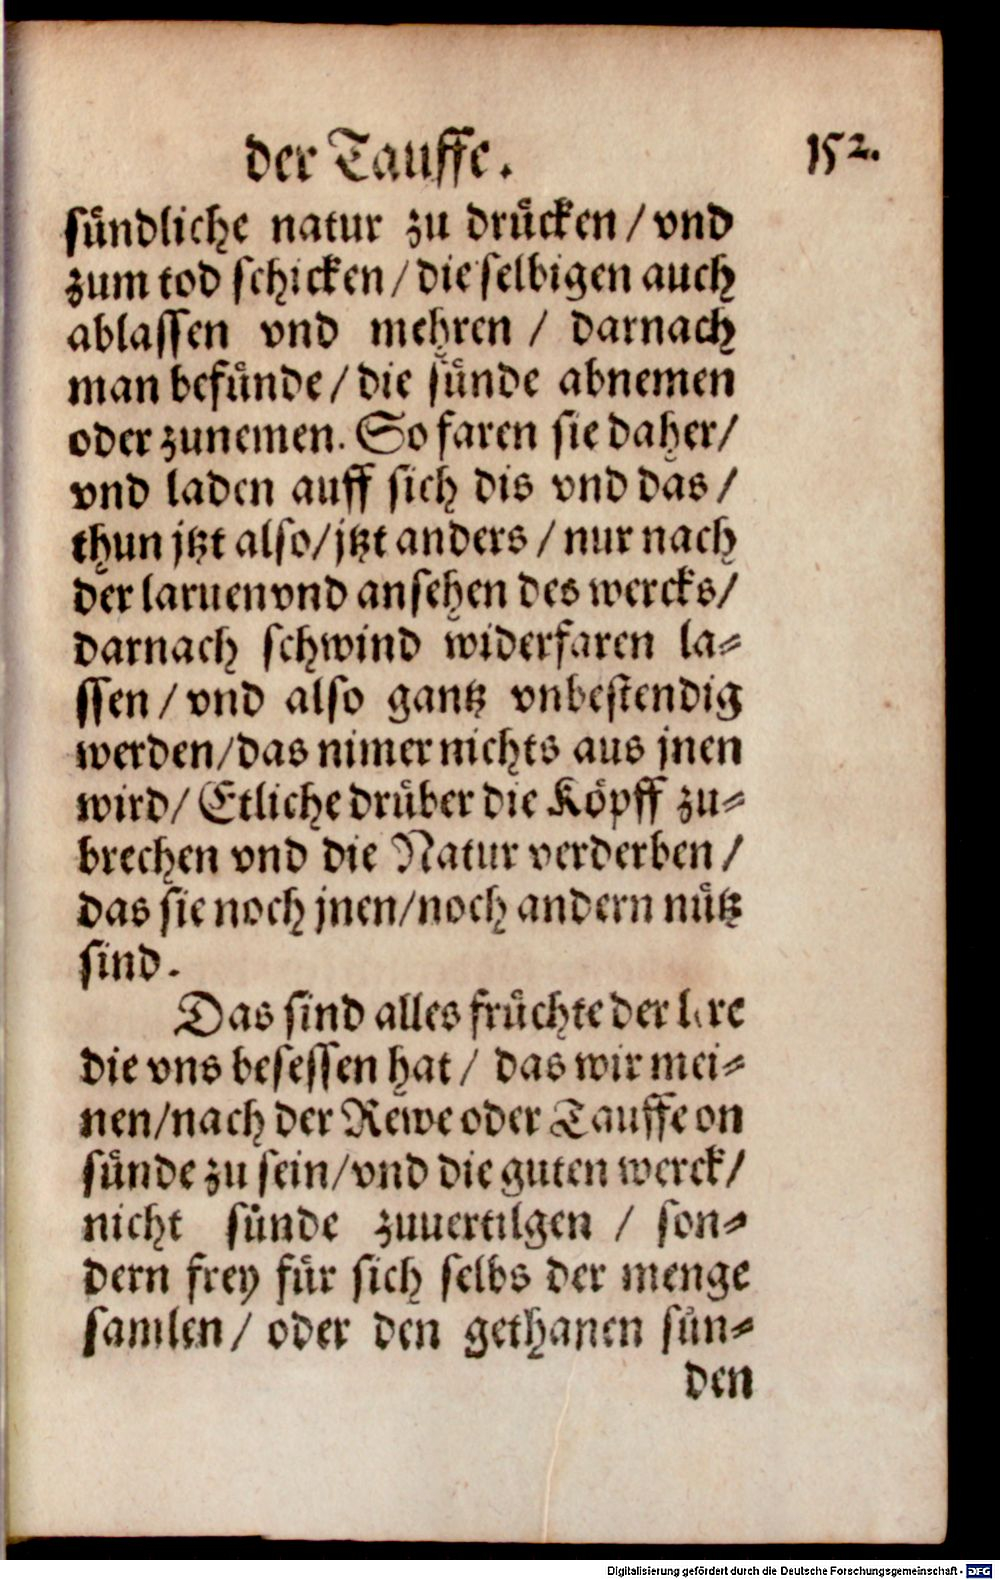 der Tauffe. 152.
sündliche natur zu drücken / vnd
zum tod schicken / die selbigen auch
ablassen vnd mehren / darnach
man befünde / die sünde abnemen
oder zunemen. So faren sie daher /
vnd laden auff sich dis vnd das /
thun jtzt also / jtzt anders / nur nach
der laruen vnd ansehen des wercks /
darnach schwind widerfaren la-
ssen / vnd also gantz vnbestendig
werden / das nimer nichts aus jnen
wird / Etliche drüber die Köpff zu-
brechen vnd die Natur verderben /
das sie noch jnen / noch andern nütz
sind.
Das sind alles früchte der lere
die vns besessen hat / das wir mei-
nen / nach der Rewe oder Tauffe on
sünde zu sein / vnd die guten werck /
nicht sünde zuuertilgen / son-
dern frey für sich selbs der menge
samlen / oder den gethanen sün-
den
Digitalisierung gefördert durch die Deutsche Forschungsgemeinschaft - DFG